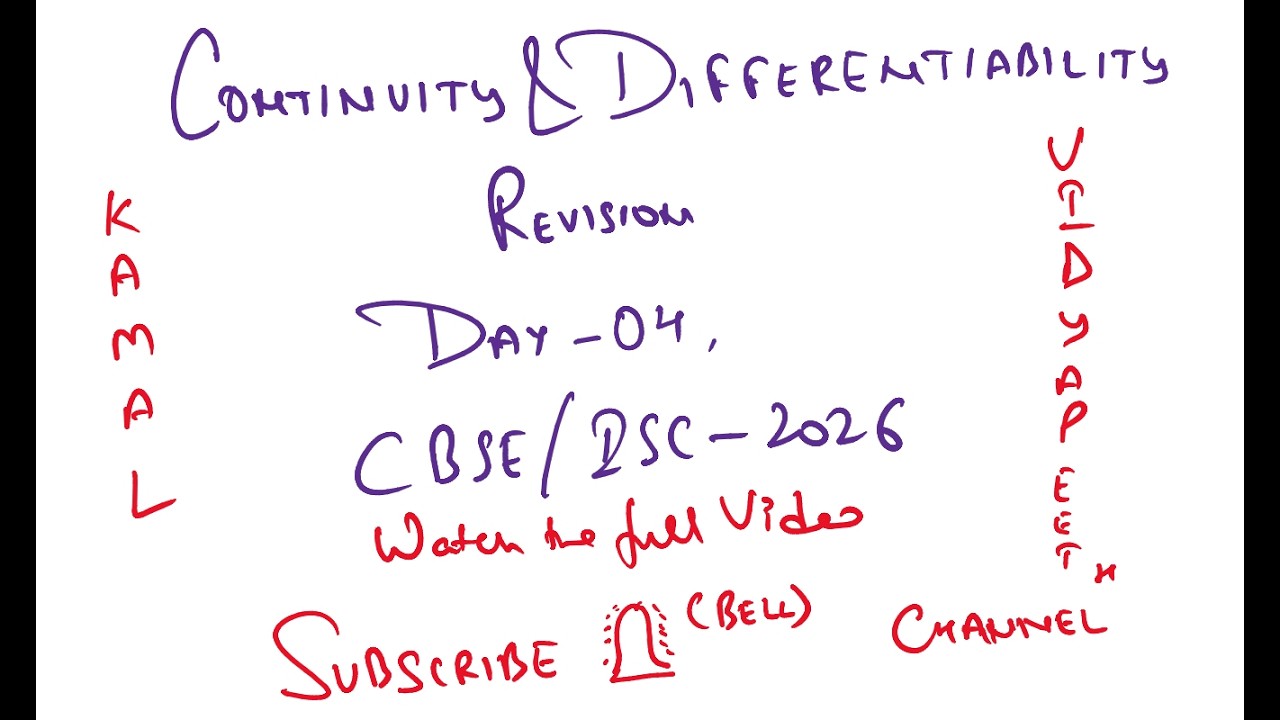 CONTINUITY & DIFFERENTIABILITY
REVISION
DAY-04,
CBSE/ISC-2026
Watch the full Video
SUBSCRIBE (BELL)
KAMAL
VIDYAPEET
CHANNEL